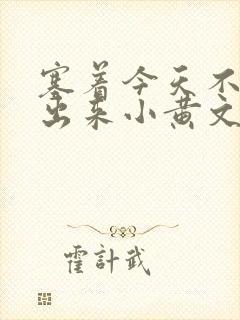 塞着今天不
出来小黄文
霍計武